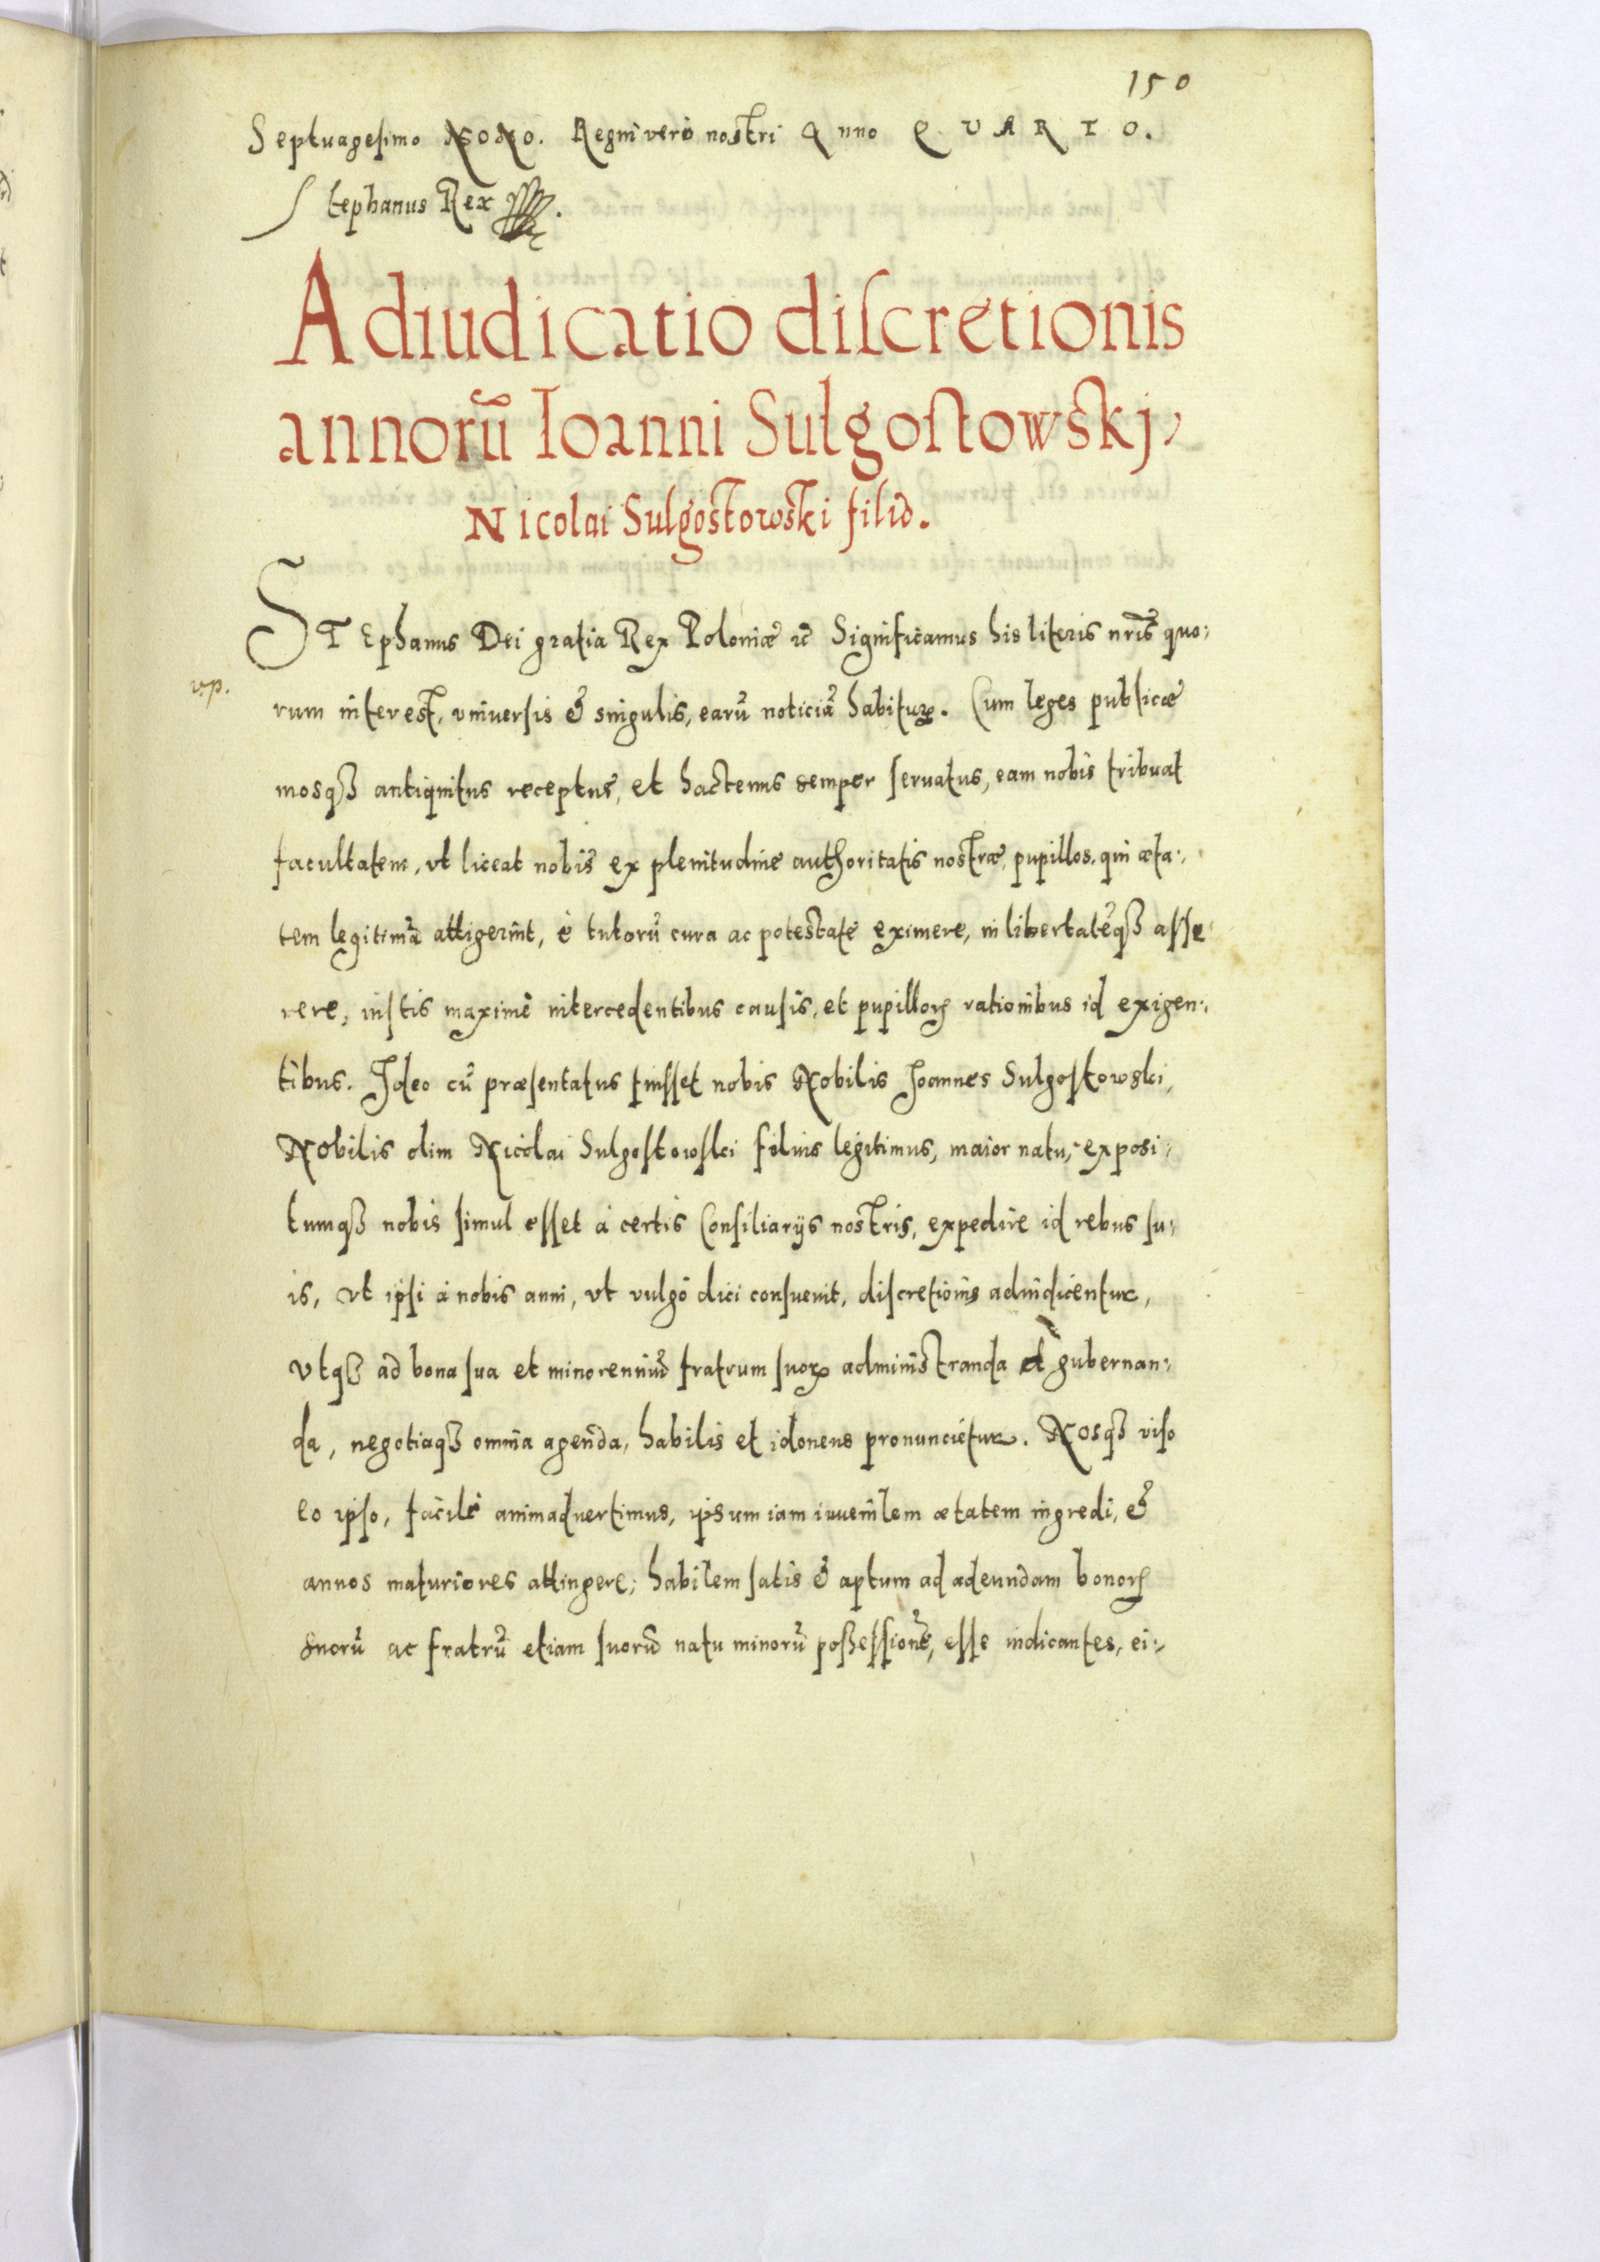 150
Septuagesimo NONO. Regni verò nostri Anno QVARTO.
Stephanus Rex
Adiudicatio discretionis
annorū Ioanni Sulgostowskj,
Nicolai Sulgostowski filio.
STEphanus Dei gratia Rex Poloniæ ꝛc̄ Significamus his literis nr̄is quo:
v.p.
rum interest, vniuersis & singulis, earū noticiā habituꝝ. Cum leges publicæ
mosqꝫ antiquitus receptus, et hactenus semper seruatus, eam nobis tribuat
facultatem, vt liceat nobis ex plenitudine authoritatis nostræ, pupillos, qui æta:
tem legitimā attigerint, è tutorū cura ac potestate eximere, in libertatēqꝫ asse
rere, iustis maximè intercedentibus causis, et pupilloꝝ rationibus id exigen:
tibus. Ideo cū præsentatus fuisset nobis Nobilis Joannes Sulgostowski,
Nobilis olim Nicolai Sulgostowski filius legitimus, maior natu, exposi:
tumqꝫ nobis simul esset à certis Consiliarijs nostris, expedire id rebus su:
is, vt ipsi à nobis anni, vt vulgò dici consueuit, discretionis adiudicentur,
vtqꝫ ad bona sua et minorenniū fratrum suoꝝ administranda et gubernan:
da, negotiaqꝫ omnia agenda, habilis et idoneus pronuncietur. Nosqꝫ viso
eo ipso, facilè animaduertimus, ipsum iam iuuenilem ætatem ingredi, &
annos maturiores attingere; habilem satis & aptum ad adeundam bonoꝝ
suorū ac fratrū etiam suorū natu minorū possessionē, esse iudicantes, ei: